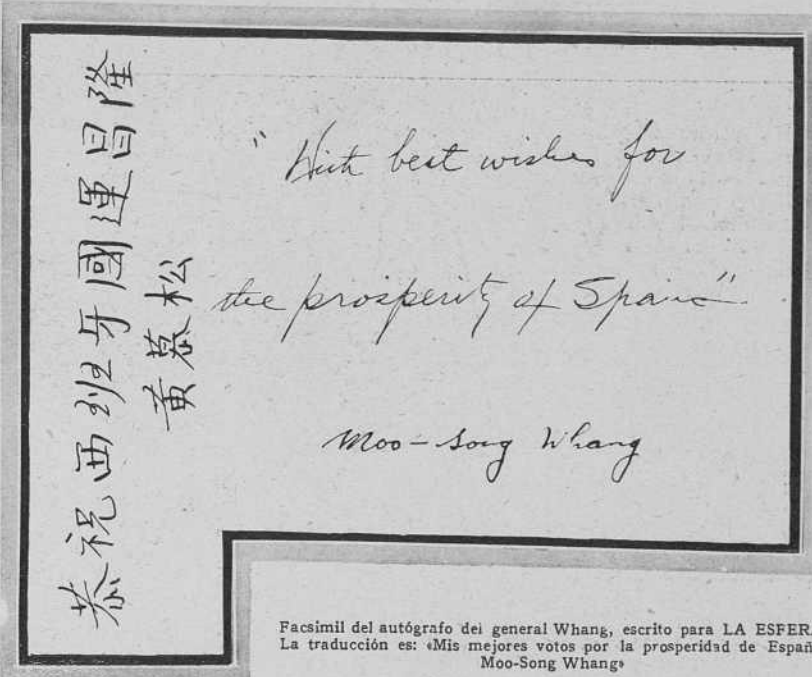 恭祝西班牙國運昌隆
黃慕松
"With best wishes for
the prosperity of Spain"
Moo-Song Whang
Facsimil del autógrafo del general Whang, escrito para LA ESFERA
La traducción es: «Mis mejores votos por la prosperidad de Españ
Moo-Song Whang»